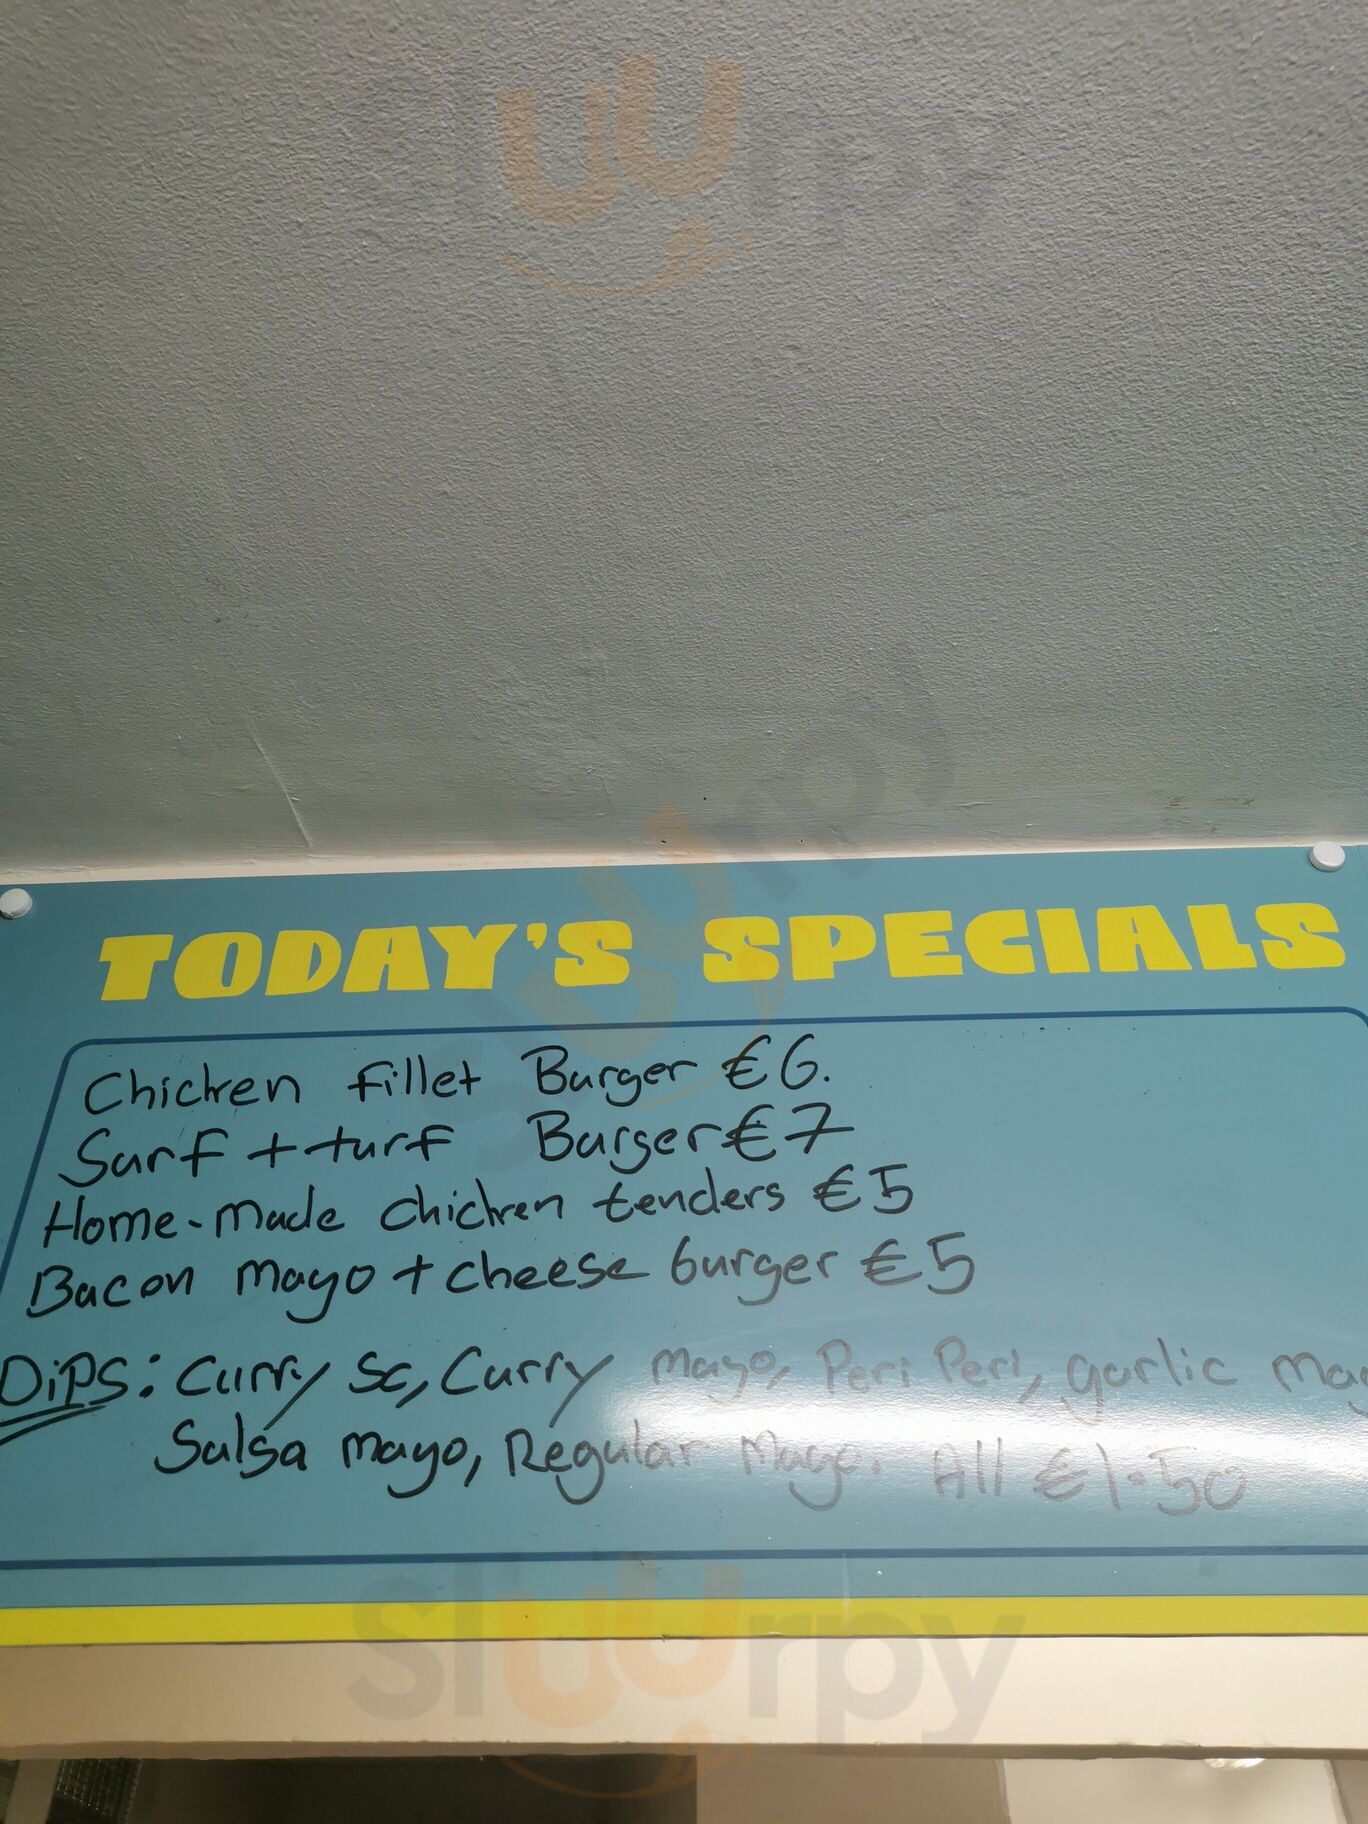 sluurpy
sluurpy
TODAY'S SPECIALS
Chicken fillet Burger €6.
Surf + turf Burger €7
Home-made chicken tenders €5
Bacon mayo + cheese burger €5
DiPS: Curry Sc, Curry mayo, Peri Peri, garlic may
Salsa mayo, Regular mayo. All €1.50
sluurpy